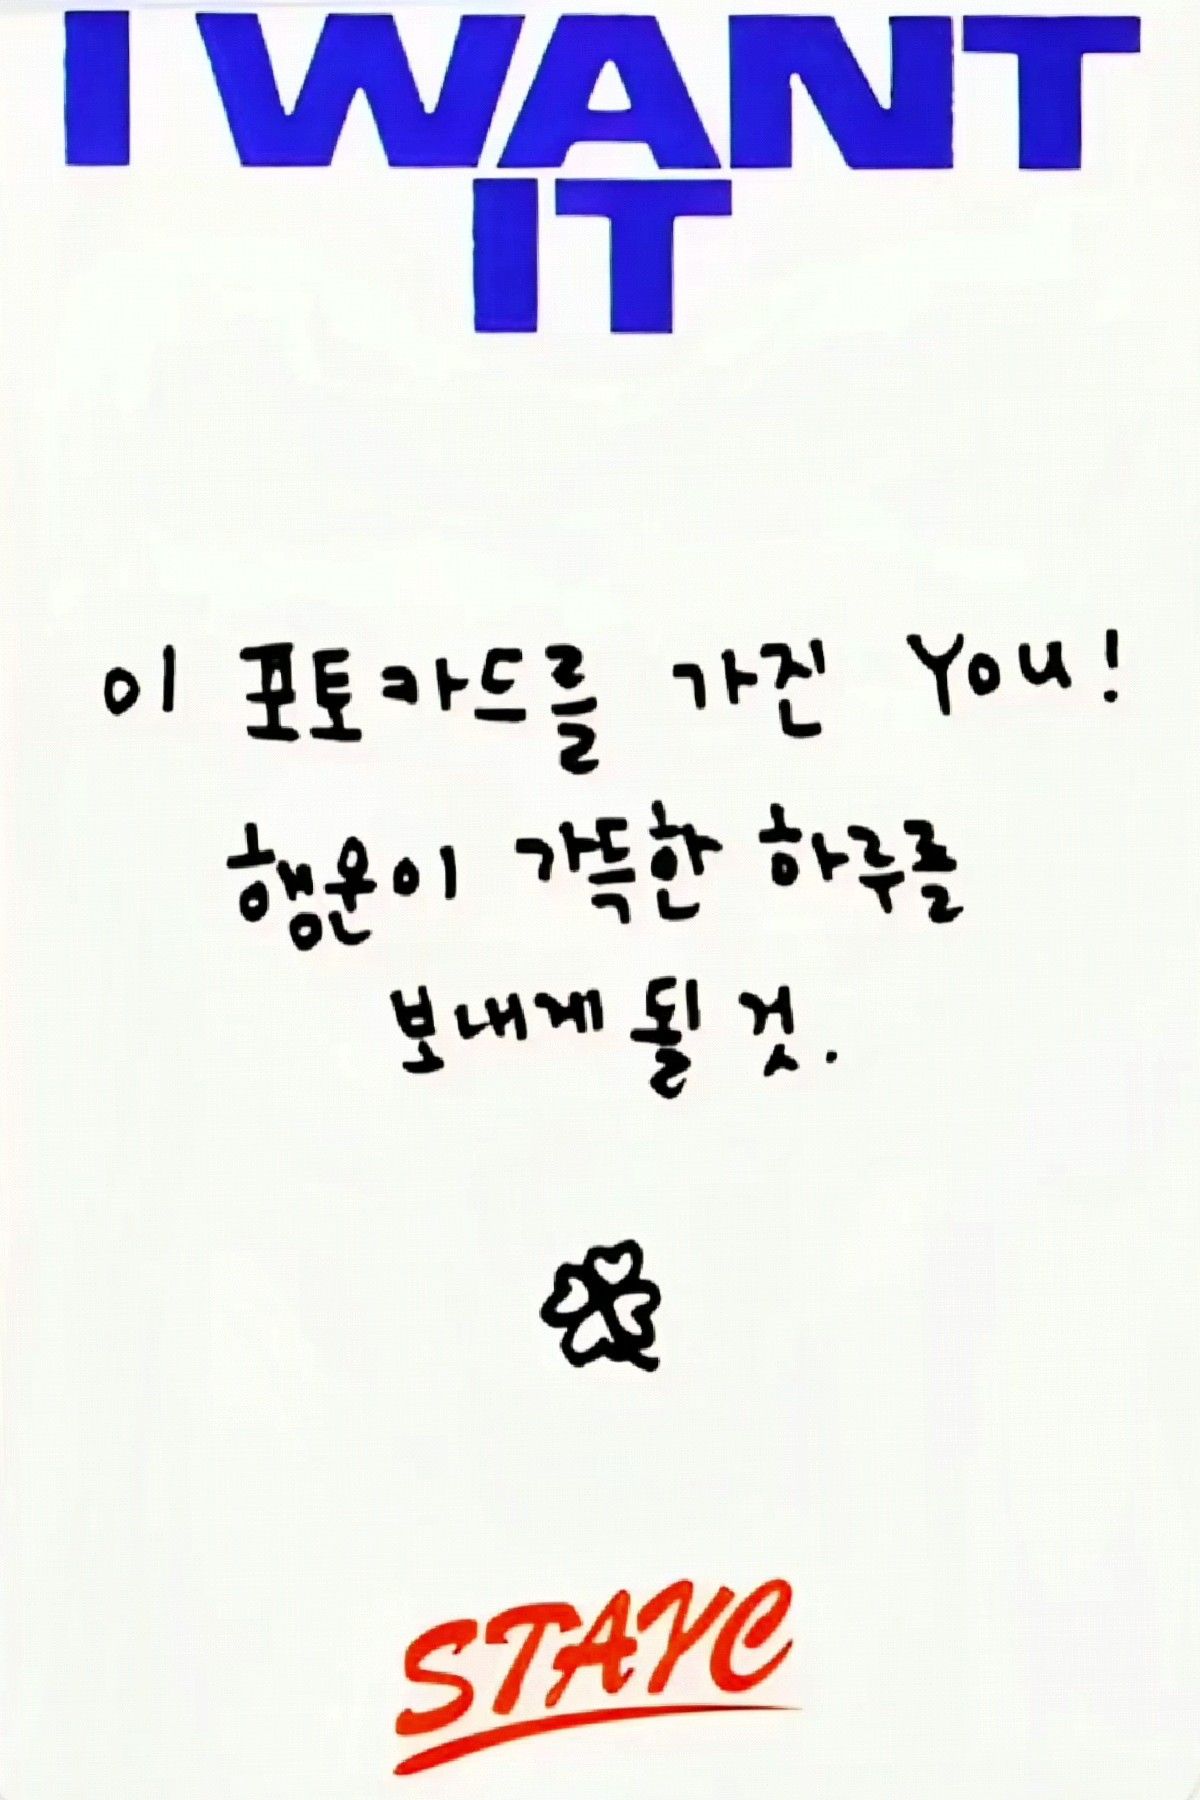 I WANT
IT
이 포토카드를 가진 YOU!
행운이 가득한 하루를
보내게 될 것.
STAYC